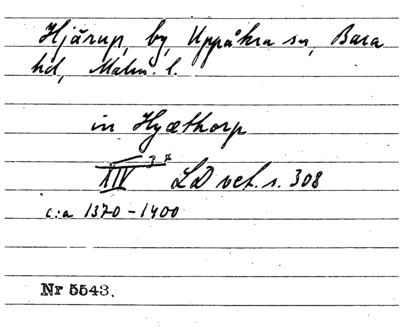 Hjärup, by, Uppåkra sn, Bara
hd, Malm. l.
in Hyæthorp
XIV LD vet. s. 308
c:a 1370-1400
Nr 5543.